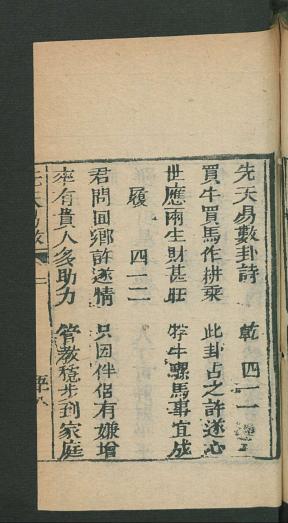 先天易數卦詩　乾　四一一
買牛買馬作耕乘　此卦占之許遂心
世應兩生財甚旺　犂牛騾馬事宜成
履　四一二
君問囬鄉許遂情　只因伴侣有嫌增
幸有貴人多助力　管教穩步到家庭
先天易數　卷二